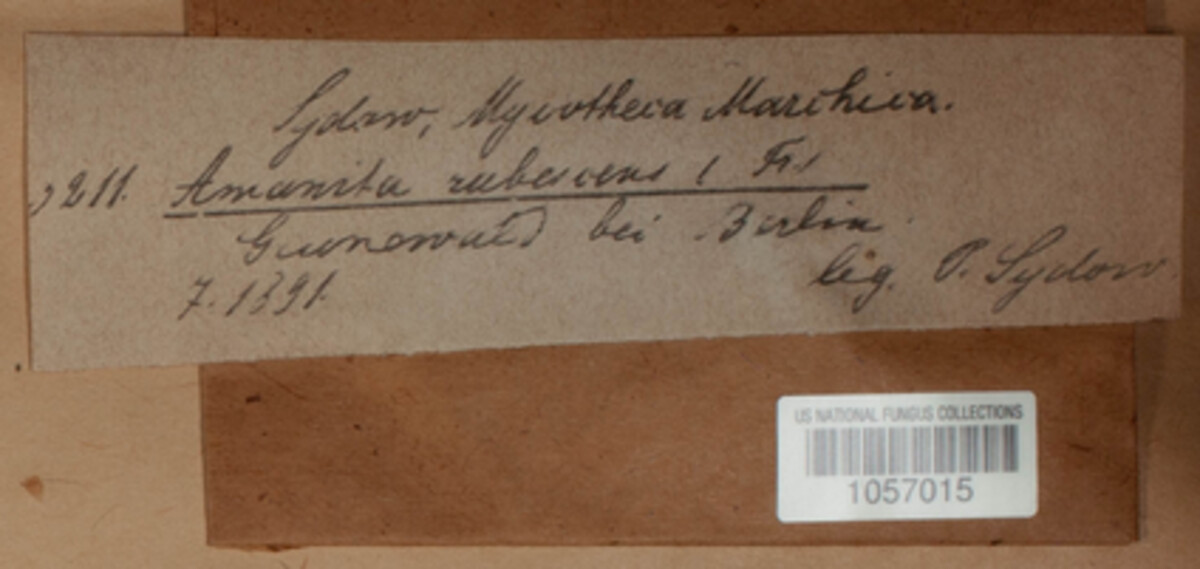 Sydow, Mycotheca Marchica.
3211. Amanita rubescens ( Fr.)
Grunewald bei Berlin.
7. 1891.
leg. P. Sydow.
US NATIONAL FUNGUS COLLECTIONS
1057015